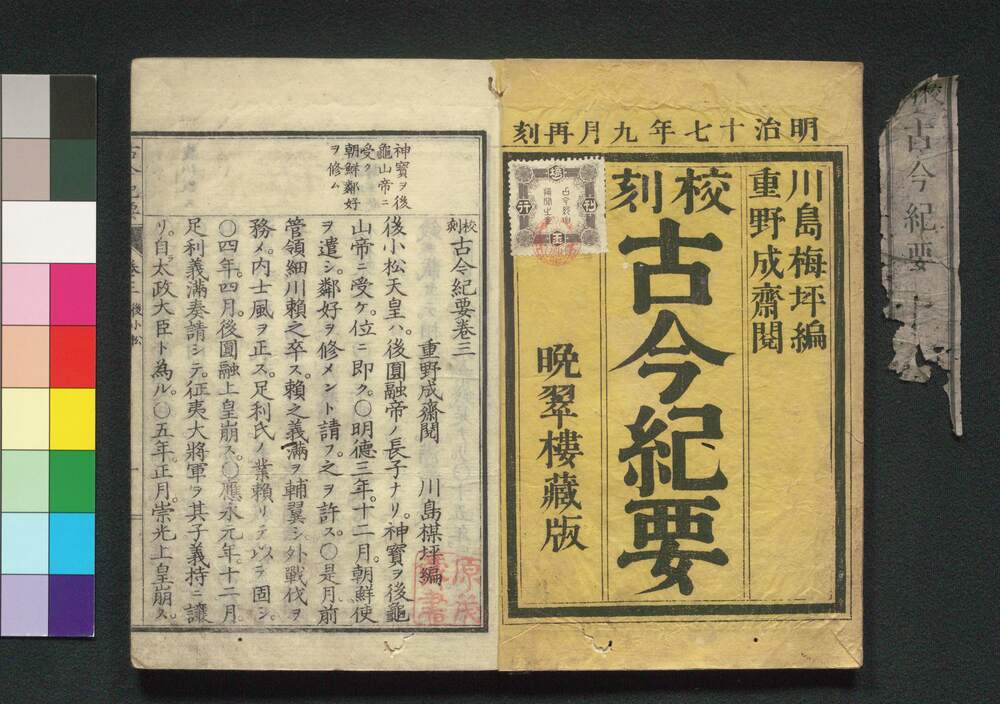 明治十七年九月再刻
川島梅坪編
重野成齋閱
校刻
古今紀要
晩翠樓藏版
神寶ヲ後
龜山帝ニ
受ク
朝鮮鄰好
ヲ修ム
校刻古今紀要卷三
重野成齋閱 川島楳坪編
後小松天皇ハ。後圓融帝ノ長子ナリ。神寶ヲ後龜
山帝ニ受ケ。位ニ即ク。〇明德三年。十二月。朝鮮使
ヲ遣シ。鄰好ヲ修メント請フ。之ヲ許ス。〇是月前
管領細川賴之卒ス。賴之義滿ヲ輔翼シ。外戰伐ヲ
務メ。內士風ヲ正ス。足利氏ノ業賴リテ以テ固シ。
〇四年。四月。後圓融上皇崩ス。〇應永元年。十二月。
足利義滿奏請シテ。征夷大將軍ヲ其子義持ニ讓
リ。自太政大臣ト為ル。〇五年。正月。崇光上皇崩ス。
古今紀要